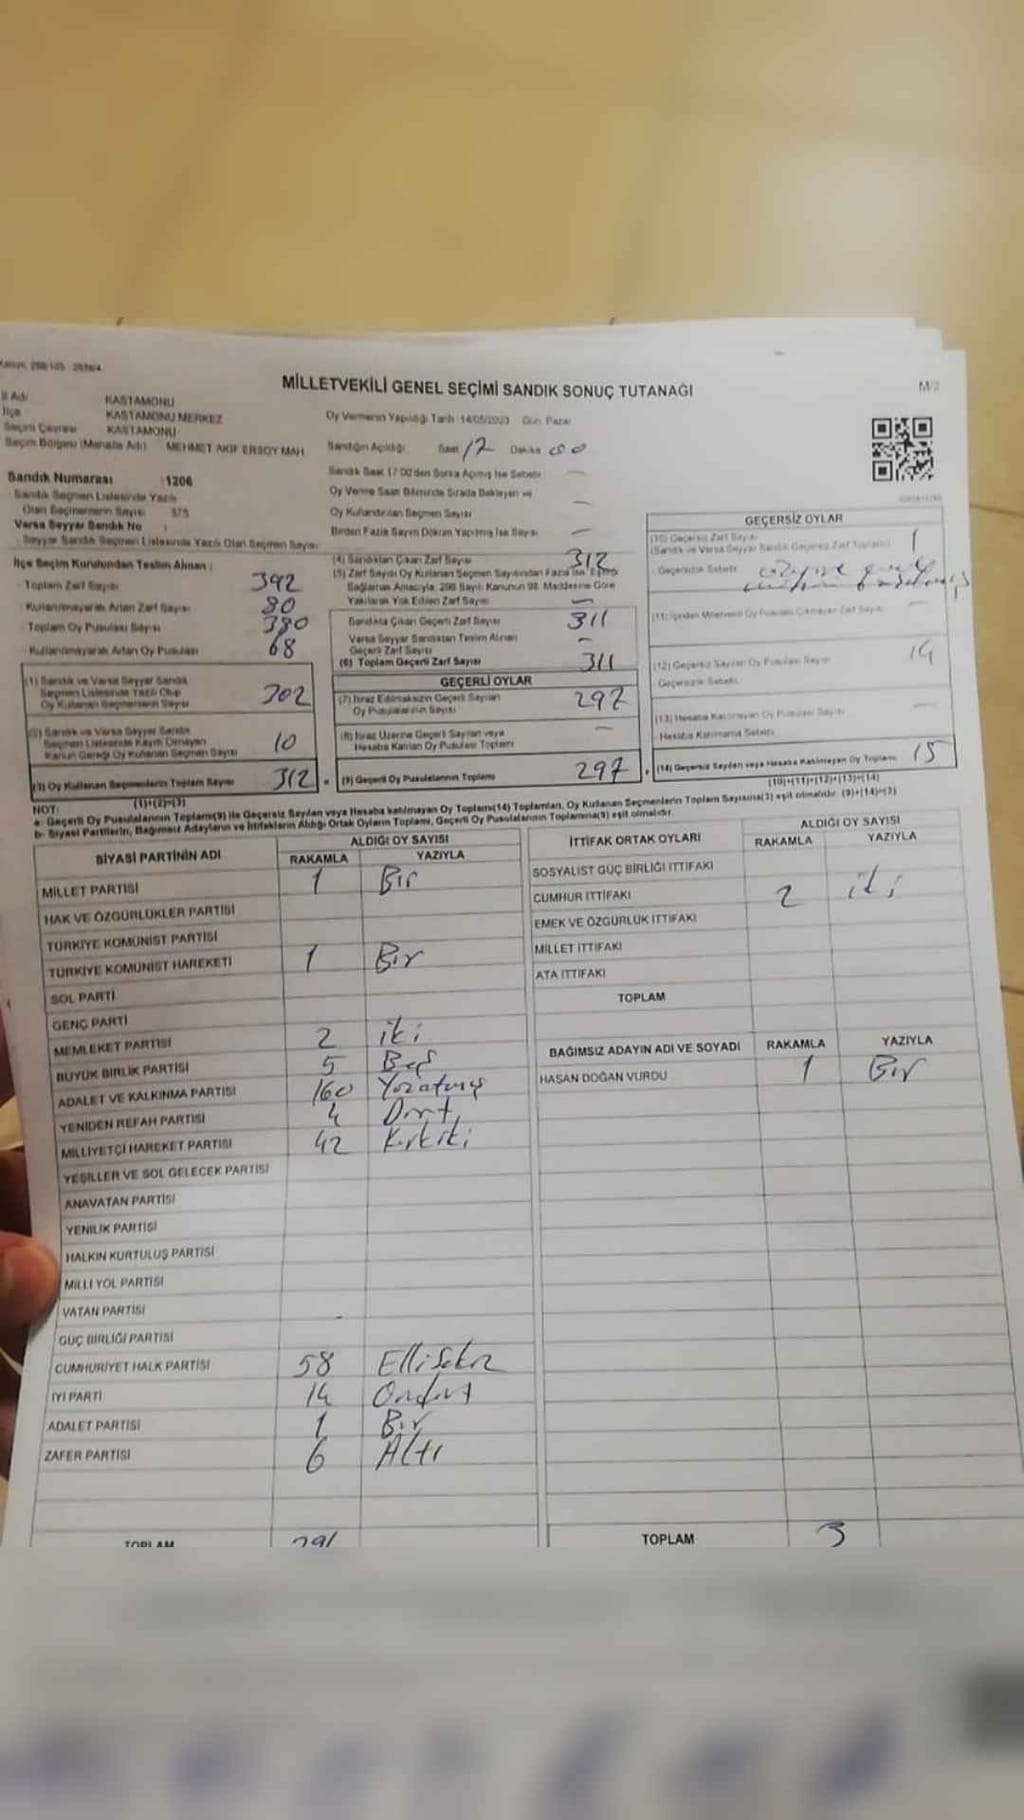 MİLLETVEKİLİ GENEL SEÇİMİ SANDIK SONUÇ TUTANAĞI
M/2
İl Adı KASTAMONU
İlçe KASTAMONU MERKEZ
Seçim Çevresi KASTAMONU
Seçim Bölgesi (Mahalle Adı) MEHMET AKİF ERSOY MAH.
Sandık Numarası : 1206
Sandık Seçmen Listesinde Yazılı
Olan Seçmenlerin Sayısı 375
Varsa Seyyar Sandık No :
Seyyar Sandık Seçmen Listesinde Yazılı Olan Seçmen Sayısı
İlçe Seçim Kurulundan Teslim Alınan :
- Toplam Zarf Sayısı 392
- Kullanılmayarak Artan Zarf Sayısı 80
- Toplam Oy Pusulası Sayısı 380
- Kullanılmayarak Artan Oy Pusulası 68
(1) Sandık ve Varsa Seyyar Sandık
Seçmen Listesinde Yazılı Olup
Oy Kullanan Seçmenlerin Sayısı 302
(2) Sandık ve Varsa Seyyar Sandık
Seçmen Listesinde Kaydı Olmayan
Kanun Gereği Oy Kullanan Seçmen Sayısı 10
(3) Oy Kullanan Seçmenlerin Toplam Sayısı 312
(1)+(2)=(3)
Oy Vermenin Yapıldığı Tarih: 14/05/2023 Gün: Pazar
Sandığın Açıldığı Saat 12 Dakika 00
Sandık Saat 17:00'den Sonra Açılmış İse Sebebi —
Oy Verme Saati Bitiminde Sırada Bekleyen ve
Oy Kullandırılan Seçmen Sayısı —
Birden Fazla Sayım Döküm Yapılmış İse Sayısı —
(4) Sandıktan Çıkan Zarf Sayısı 312
(5) Zarf Sayısı Oy Kullanan Seçmen Sayısından Fazla İse Eşitliği
Sağlamak Amacıyla, 298 Sayılı Kanunun 98. Maddesine Göre
Yakılarak Yok Edilen Zarf Sayısı —
Sandıkta Çıkan Geçerli Zarf Sayısı 311
Varsa Seyyar Sandıktan Teslim Alınan
Geçerli Zarf Sayısı —
(6) Toplam Geçerli Zarf Sayısı 311
GEÇERLİ OYLAR
(7) İtiraz Edilmeksizin Geçerli Sayılan
Oy Pusulalarının Sayısı 297
(8) İtiraz Üzerine Geçerli Sayılan veya
Hesaba Katılan Oy Pusulası Toplamı —
(9) Geçerli Oy Pusulalarının Toplamı 297
GEÇERSİZ OYLAR
(10) Geçersiz Zarf Sayısı 1
(Sandık ve Varsa Seyyar Sandık Geçersiz Zarf Toplamı)
- Geçersizlik Sebebi
(11) İçinden Milletvekili Oy Pusulası Çıkmayan Zarf Sayısı —
(12) Geçersiz Sayılan Oy Pusulası Sayısı 14
- Geçersizlik Sebebi
(13) Hesaba Katılmayan Oy Pusulası Sayısı —
- Hesaba Katılmama Sebebi
(14) Geçersiz Sayılan veya Hesaba Katılmayan Oy Toplamı 15
(10)+(11)+(12)+(13)=(14)
NOT:
a- Geçerli Oy Pusulalarının Toplamı(9) ile Geçersiz Sayılan veya Hesaba katılmayan Oy Toplamı(14) Toplamları, Oy Kullanan Seçmenlerin Toplam Sayısına(3) eşit olmalıdır. (9)+(14)=(3)
b- Siyasi Partilerin, Bağımsız Adayların ve İttifakların Aldığı Ortak Oyların Toplamı, Geçerli Oy Pusulalarının Toplamına(9) eşit olmalıdır.
SİYASİ PARTİNİN ADI ALDIĞI OY SAYISI
RAKAMLA YAZIYLA
MİLLET PARTİSİ 1 Bir
HAK VE ÖZGÜRLÜKLER PARTİSİ
TÜRKİYE KOMÜNİST PARTİSİ
TÜRKİYE KOMÜNİST HAREKETİ 1 Bir
SOL PARTİ
GENÇ PARTİ
MEMLEKET PARTİSİ 2 iki
BÜYÜK BİRLİK PARTİSİ 5 Beş
ADALET VE KALKINMA PARTİSİ 160 Yüzatmış
YENİDEN REFAH PARTİSİ 4 Dört
MİLLİYETÇİ HAREKET PARTİSİ 42 Kırkiki
YEŞİLLER VE SOL GELECEK PARTİSİ
ANAVATAN PARTİSİ
YENİLİK PARTİSİ
HALKIN KURTULUŞ PARTİSİ
MİLLİ YOL PARTİSİ
VATAN PARTİSİ
GÜÇ BİRLİĞİ PARTİSİ
CUMHURİYET HALK PARTİSİ 58 Ellisekiz
İYİ PARTİ 14 Ondört
ADALET PARTİSİ 1 Bir
ZAFER PARTİSİ 6 Altı
TOPLAM 291
İTTİFAK ORTAK OYLARI ALDIĞI OY SAYISI
RAKAMLA YAZIYLA
SOSYALİST GÜÇ BİRLİĞİ İTTİFAKI
CUMHUR İTTİFAKI 2 iki
EMEK VE ÖZGÜRLÜK İTTİFAKI
MİLLET İTTİFAKI
ATA İTTİFAKI
TOPLAM
BAĞIMSIZ ADAYIN ADI VE SOYADI RAKAMLA YAZIYLA
HASAN DOĞAN VURDU 1 Bir
TOPLAM 3